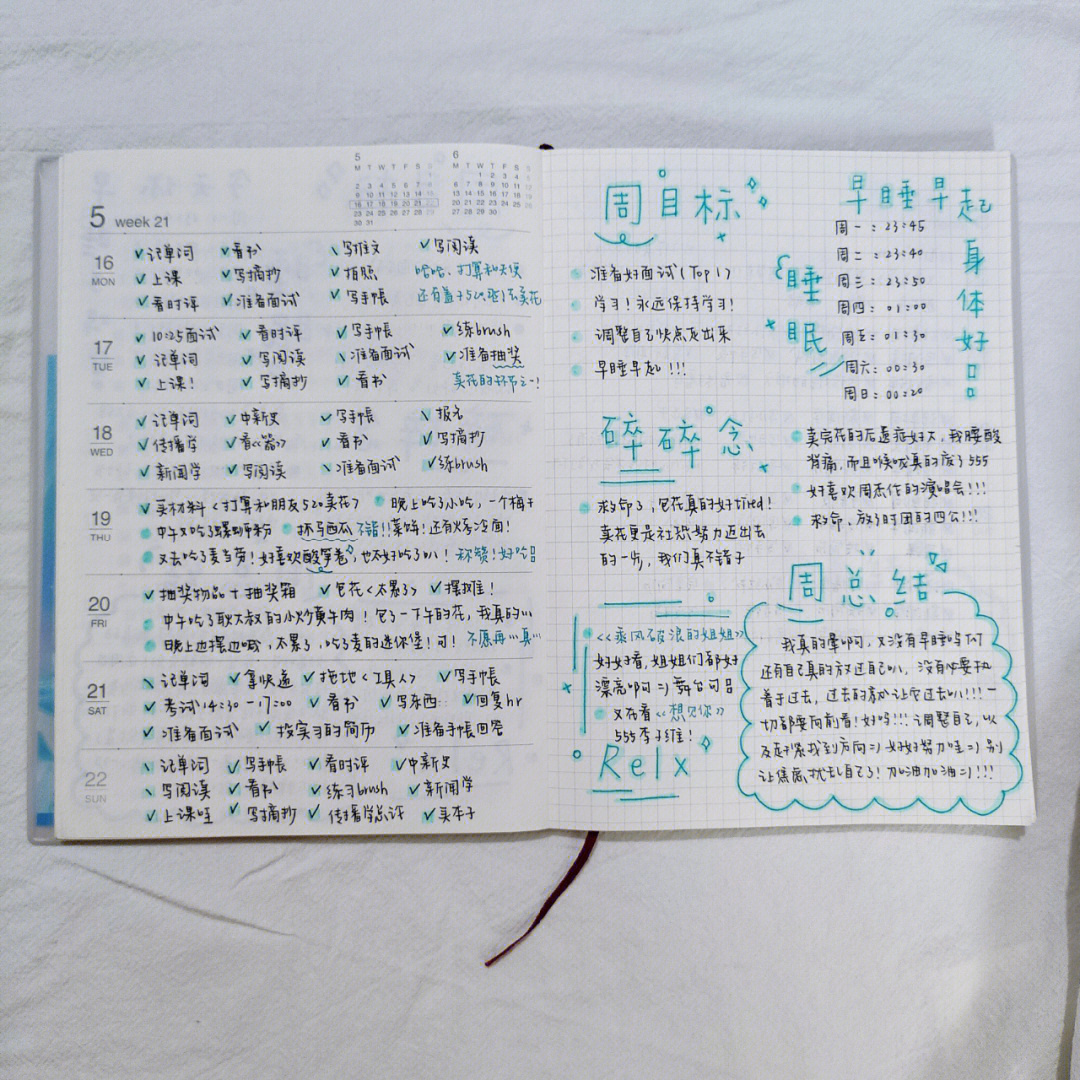 5 week 21
5
M T W T F S S
2 3 4 5 6 7 8
9 10 11 12 13 14 15
16 17 18 19 20 21 22
23 24 25 26 27 28 29
30 31
6
M T W T F S S
1 2 3 4 5
6 7 8 9 10 11 12
13 14 15 16 17 18 19
20 21 22 23 24 25 26
27 28 29 30
16 MON
记单词 看书 写推文 写阅读
上课 写摘抄 拍照 哈哈、打算和天使
看时评 准备面试 写手帐 还有盖子520那1去卖花
17 TUE
10:25面试 看时评 写手帐 练brush
记单词 写阅读 准备面试 准备抽奖
上课! 写摘抄 看书 卖花的环节之一!
18 WED
记单词 中新史 写手帐 报名
传播学 看《篇》 看书 写摘抄
新闻学 写阅读 准备面试 练brush
19 THU
买材料<打算和朋友520卖花> 晚上吃了小吃,一个梅干
中午又吃了螺蛳粉 杯马西瓜不错!!菜饼!还有烤冷面!
又去吃了麦当劳!好喜欢酸笋卷,也太好吃了叭!称赞!好吃
20 FRI
抽奖物品+抽奖箱 包花<太累了> 摆摊!
中午吃了耿大叔的小炒黄牛肉!包了一下午的花,我真的
晚上也摆边喊,太累了,吃了麦的迷你堡!可!不愿再
21 SAT
记单词 拿快递 拖地<工具人> 写手帐
考试14:30-17:00 看书 写东西 回复hr
准备面试 找实习的简历 准备手帐回答
22 SUN
记单词 写手帐 看时评 中新史
写阅读 看书 练习brush 新闻学
上课哇 写摘抄 传播学总评 买本子
周目标
准备好面试(Top1)
学习!永远保持学习!
调整自己快点走出来
早睡早起!!!
早睡早起身体好
睡眠
周一:23:45
周二:23:40
周三:23:50
周四:01:00
周五:01:30
周六:00:30
周日:00:20
碎碎念
救命了,包花真的好tired!
卖花更是社恐努力迈出去
的一步,我们真不错子
卖完花的后遗症好大,我腰酸
背痛,而且喉咙真的废了555
好喜欢周杰伦的演唱会!!!
救命、放了时团的四公!!!
《乘风破浪的姐姐》
好好看,姐姐们都好
漂亮啊 =) 舞台可
又在看《想见你》
555李子维!
Relx
周总结
我真的晕啊,又没有早睡吗
还有自己真的放过自己叭,没有必要执
着于过去,过去的就让它过去叭!!!一
切都要向前看!好吗!!!调整自己,以
及赶紧找到方向 =) 好好努力哇 =) 别
让焦虑扰乱自己了!加油加油 =) !!!